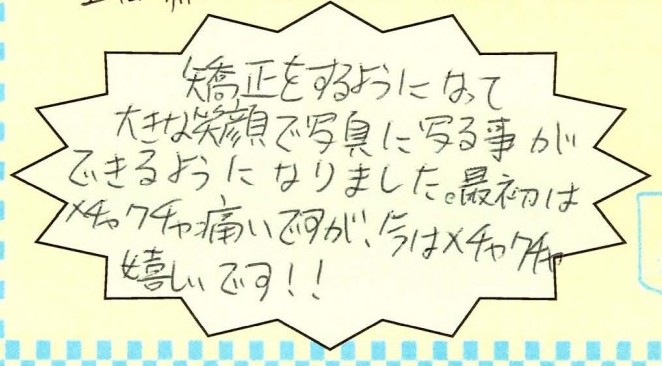 矯正をするようになって
大きな笑顔で写真に写る事が
できるようになりました。最初は
メチャクチャ痛いですが、今はメチャクチャ
嬉しいです！！